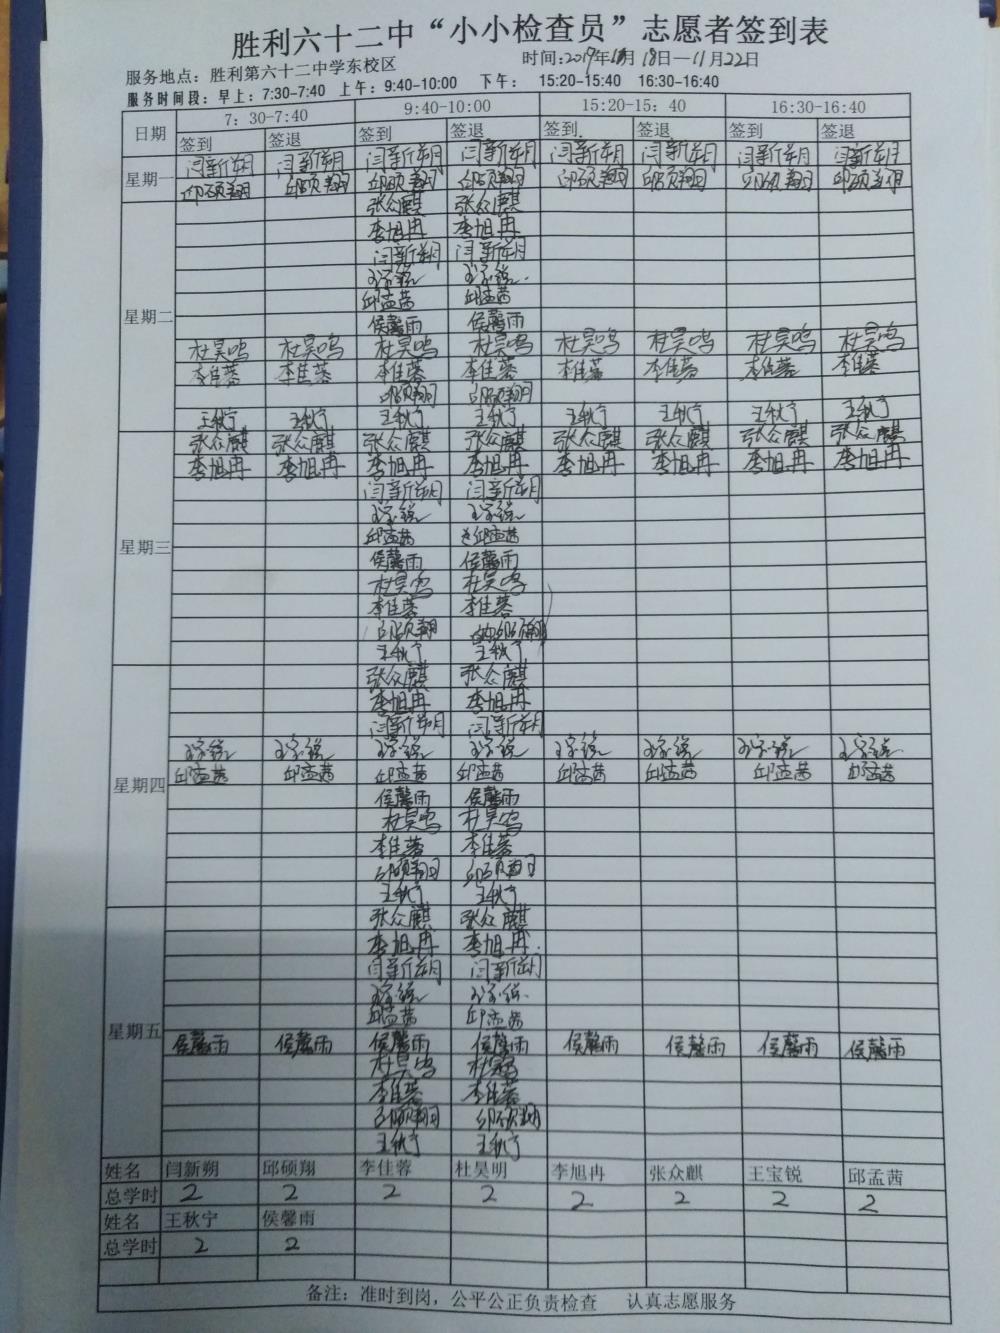 胜利六十二中“小小检查员”志愿者签到表
服务地点：胜利第六十二中学东校区 时间:2019年11月18日—11月22日
服务时间段：早上：7:30-7:40 上午：9:40-10:00 下午： 15:20-15:40 16:30-16:40
日期 7：30-7:40 9:40-10:00 15:20-15：40 16:30-16:40
签到 签退 签到 签退 签到. 签退 签到 签退
星期一 闫新朔 闫新朔 闫新朔 闫新朔 闫新朔 闫新朔 闫新朔 闫新朔
邱硕翔 邱硕翔 邱硕翔 邱硕翔 邱硕翔 邱硕翔 邱硕翔 邱硕翔
星期二 张众麒 张众麒
李旭冉 李旭冉
闫新朔 闫新朔
王宝锐 王宝锐
邱孟茜 邱孟茜
侯馨雨 侯馨雨
杜昊鸣 杜昊鸣 杜昊鸣 杜昊鸣 杜昊鸣 杜昊鸣 杜昊鸣 杜昊鸣
李佳蓉 李佳蓉 李佳蓉 李佳蓉 李佳蓉 李佳蓉 李佳蓉 李佳蓉
邱硕翔 邱硕翔
王秋宁 王秋宁 王秋宁 王秋宁 王秋宁 王秋宁 王秋宁 王秋宁
星期三 张众麒 张众麒 张众麒 张众麒 张众麒 张众麒 张众麒 张众麒
李旭冉 李旭冉 李旭冉 李旭冉 李旭冉 李旭冉 李旭冉 李旭冉
闫新朔 闫新朔
王宝锐 王宝锐
邱孟茜 邱孟茜
侯馨雨 侯馨雨
杜昊鸣 杜昊鸣
李佳蓉 李佳蓉
邱硕翔 邱硕翔
王秋宁 王秋宁
星期四 张众麒 张众麒
李旭冉 李旭冉
闫新朔 闫新朔
王宝锐 王宝锐 王宝锐 王宝锐 王宝锐 王宝锐 王宝锐 王宝锐
邱孟茜 邱孟茜 邱孟茜 邱孟茜 邱孟茜 邱孟茜 邱孟茜 邱孟茜
侯馨雨 侯馨雨
杜昊鸣 杜昊鸣
李佳蓉 李佳蓉
邱硕翔 邱硕翔
王秋宁 王秋宁
星期五 张众麒 张众麒
李旭冉 李旭冉
闫新朔 闫新朔
王宝锐 王宝锐
邱孟茜 邱孟茜
侯馨雨 侯馨雨 侯馨雨 侯馨雨 侯馨雨 侯馨雨 侯馨雨 侯馨雨
杜昊鸣 杜昊鸣
李佳蓉 李佳蓉
邱硕翔 邱硕翔
王秋宁 王秋宁
姓名 闫新朔 邱硕翔 李佳蓉 杜昊明 李旭冉 张众麒 王宝锐 邱孟茜
总学时 2 2 2 2 2 2 2 2
姓名 王秋宁 侯馨雨
总学时 2 2
备注：准时到岗，公平公正负责检查 认真志愿服务